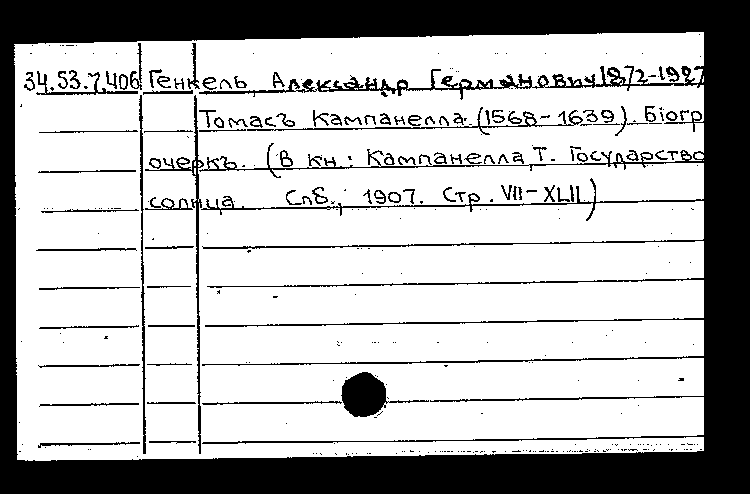 34.53.7.406 Генкель, Александр Германович 1872-1927
Томасъ Кампанелла. (1568-1639). Біогр
очеркъ. (В кн.: Кампанелла, Т. Государство
солнца. Спб., 1907. Стр. VII-XLII)